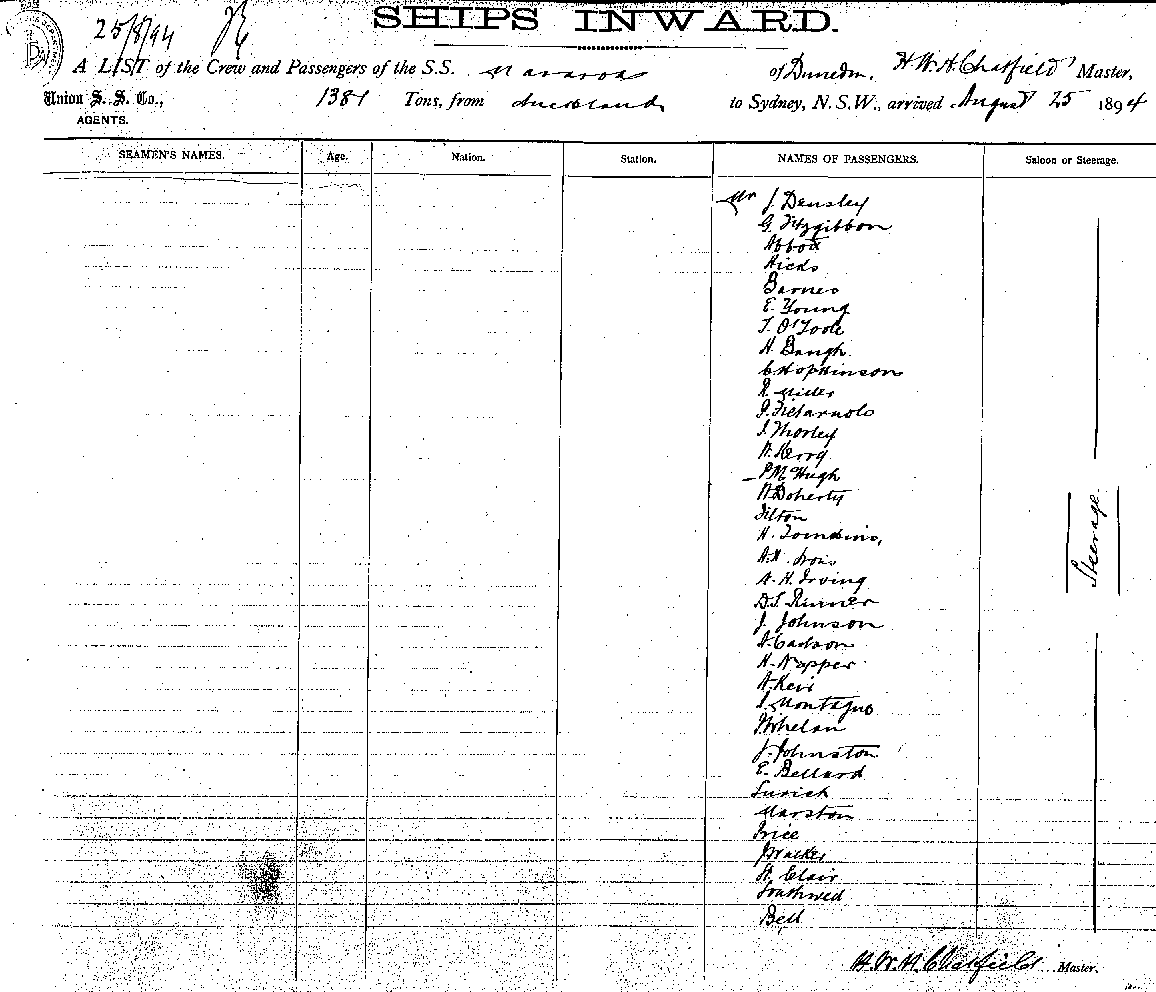 25/8/94
SHIPS INWARD.
A LIST of the Crew and Passengers of the S.S. Mararoa of Dunedin, H. W. H. Chatfield Master,
Union S. S. Co., 1381 Tons, from Auckland to Sydney, N. S. W., arrived August 25 1894
AGENTS.
SEAMEN'S NAMES. Age. Nation. Station. NAMES OF PASSENGERS. Saloon or Steerage.
Mr J. Densley
G. Fitzgibbon
Abbott
Hicks
Barnes
E. Young
T. O'Toole
H. Baugh
C. Hopkinson
R. Miller
J. Thorley
P. McHugh
W. Doherty
Tilton
H. Tomkins,
A. H. Irving
J. Johnson
H. Napper
A. Keir
S. Montague
Whelan
J. Johnston
E. Bellard
Marston
Price
St. Clair
Southwed
Bell
Steerage.
H. W. H. Chatfield Master.